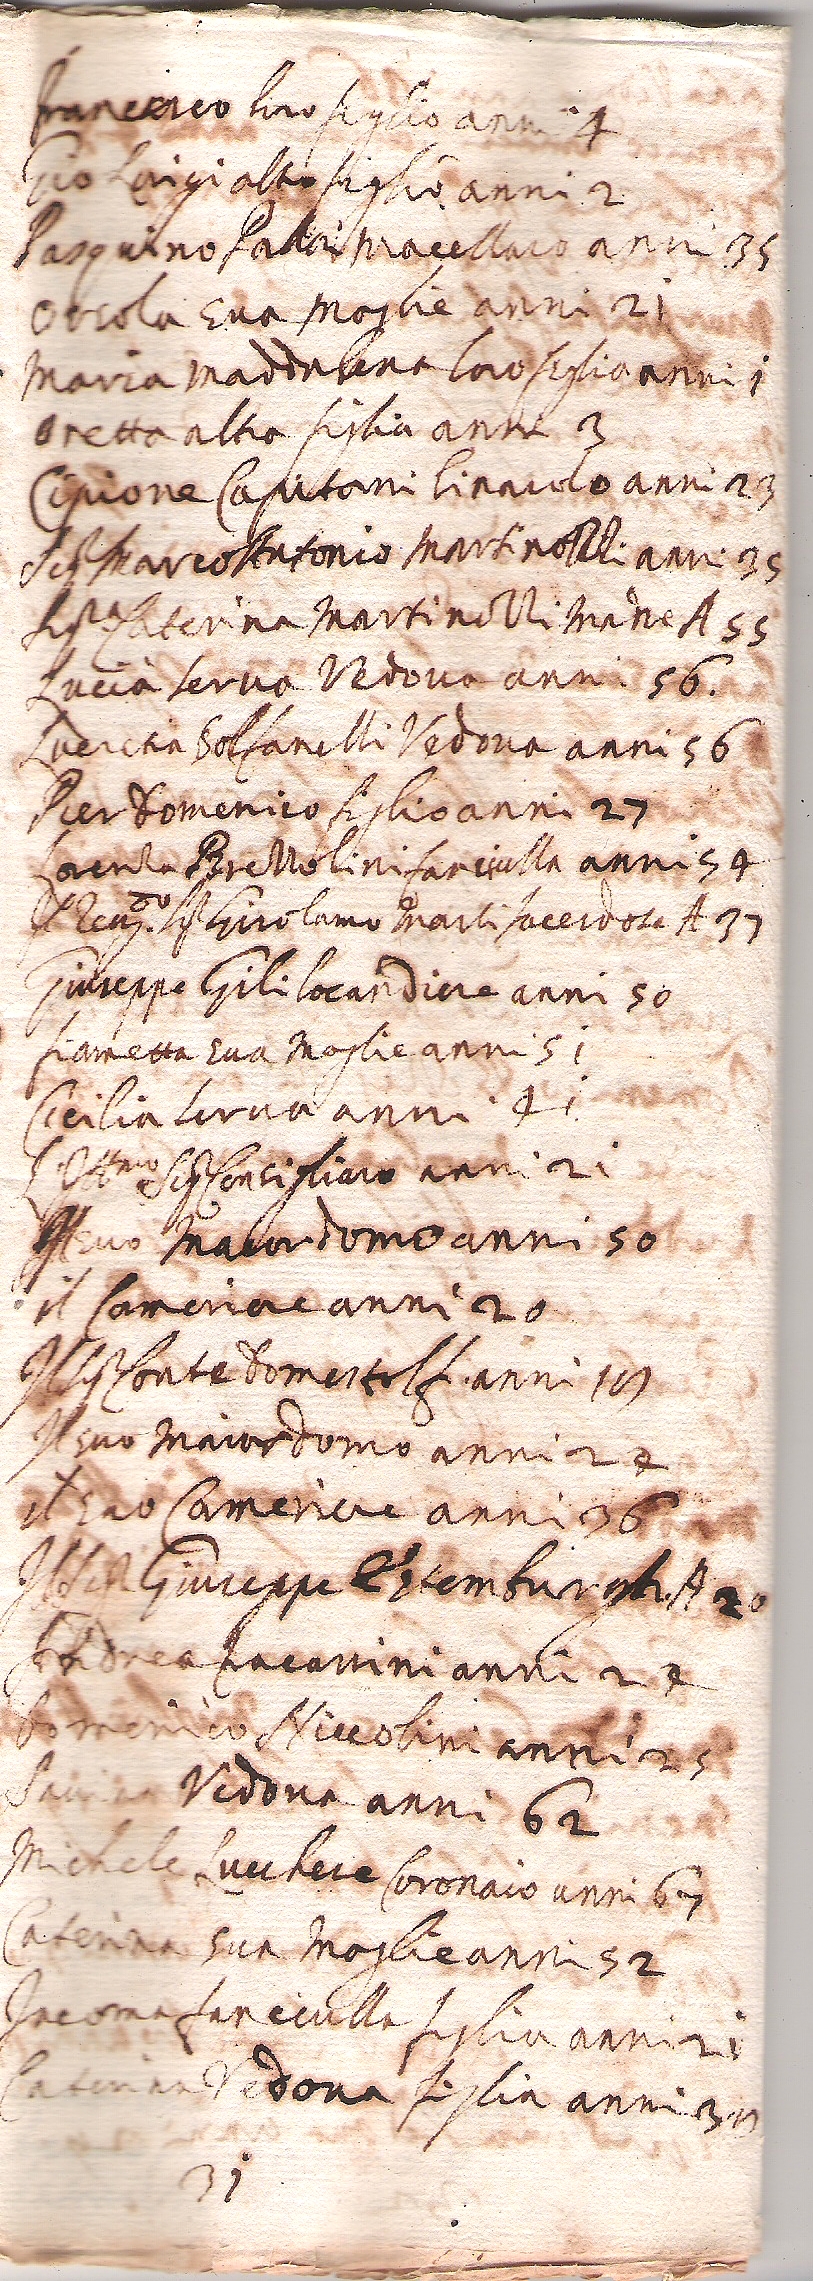 Francesco loro figlio anni 4
Gio Luigi altro figlio anni 2
Pasquino macellaro anni 35
Orsola sua moglie anni 21
Maria Maddalena loro figlia anni 1
Oretta altra figlia anni 3
Cipione Capitani anni 23
Sigr Marco Antonio Martinozzi anni 35
Sigra Caterina Martinozzi Madre A 55
Lucia serva Vedova anni 56.
Lucretia Vedova anni 56
Pier Domenico figlio anni 27
fanciulla anni 54
Il Sigr Girolamo Marti sacerdote A 37
Giuseppe Gili locandiere anni 50
Fiametta sua Moglie anni 51
Cicilia serva anni 41
Sigr Consigliaro anni 21
Il suo Maiordomo anni 50
il Cameriere anni 20
Il Sigr Conte anni
Il suo Maiordomo anni 24
il suo Cameriere anni 36
Il Sigr Giuseppe A 20
Andrea anni 24
Domenico Niccolini anni 25
Vedova anni 62
Michele Lucchese Coronaio anni 67
Caterina sua Moglie anni 52
Iacoma fanciulla figlia anni 21
Caterina Vedova figlia anni
31